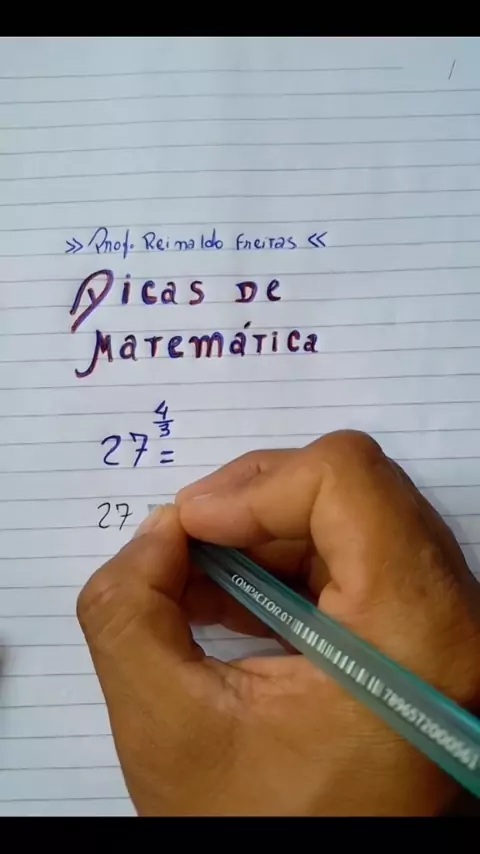 >> Prof. Reinaldo Freitas <<
Dicas de
Matemática
27^(4/3) =
27
COMPACTOR 07 7896572000561